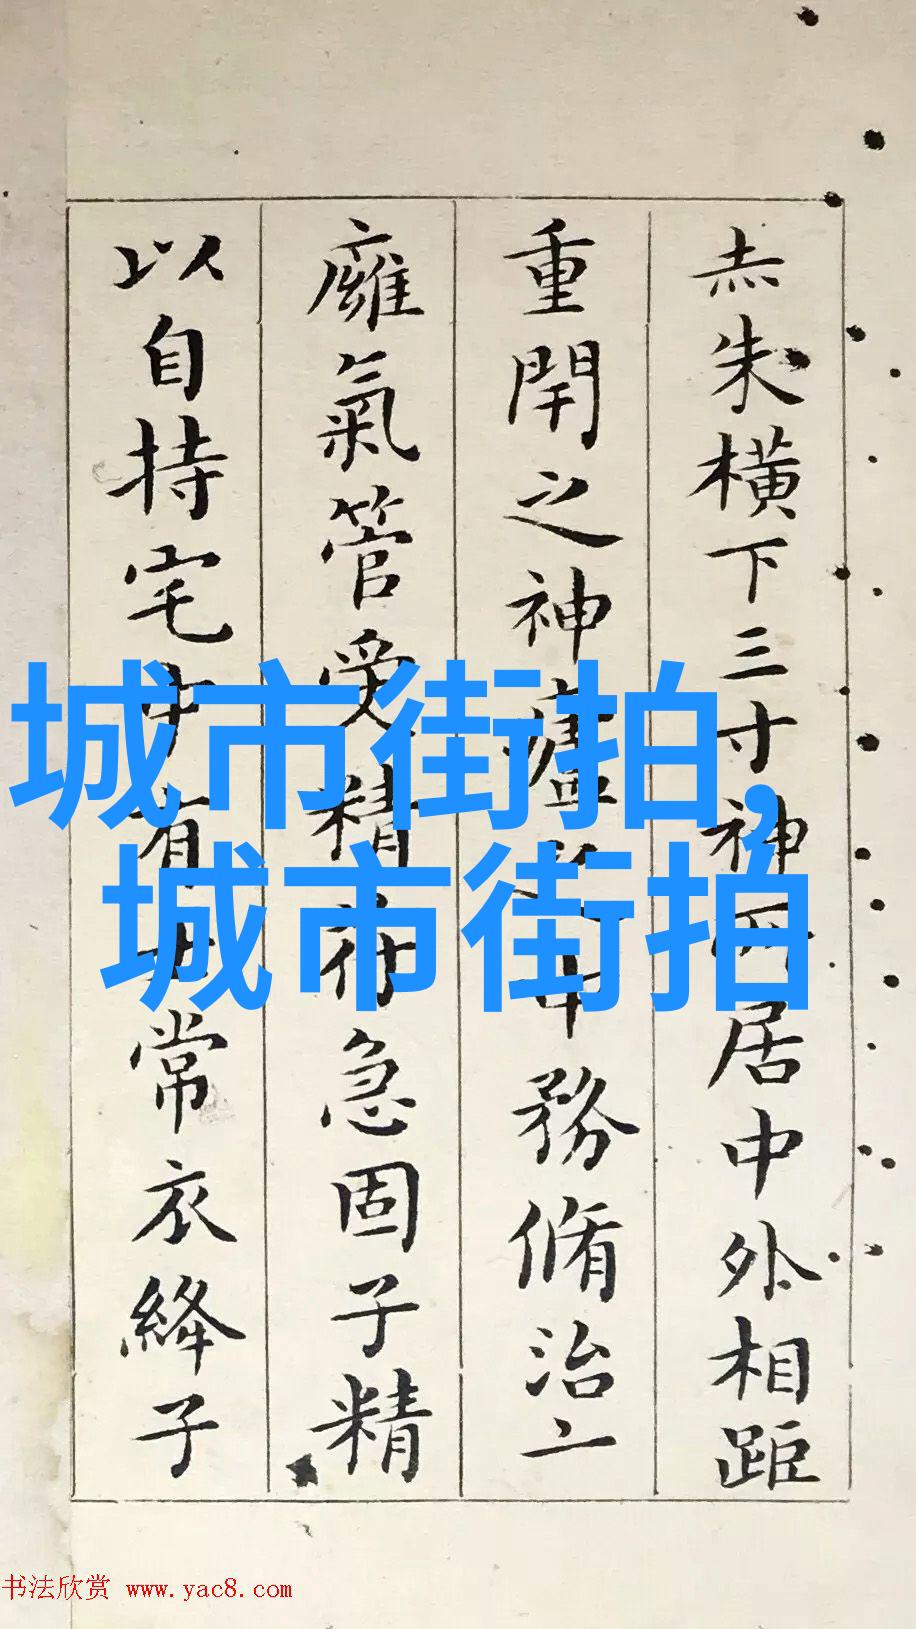 赤朱橫下三寸神所居中外相距
重閇之神廬之中務脩治
廱氣管受精苻急固子精
以自持宅中有士常衣絳子
城市街拍,
城市街拍
书法欣赏 www.yac8.com